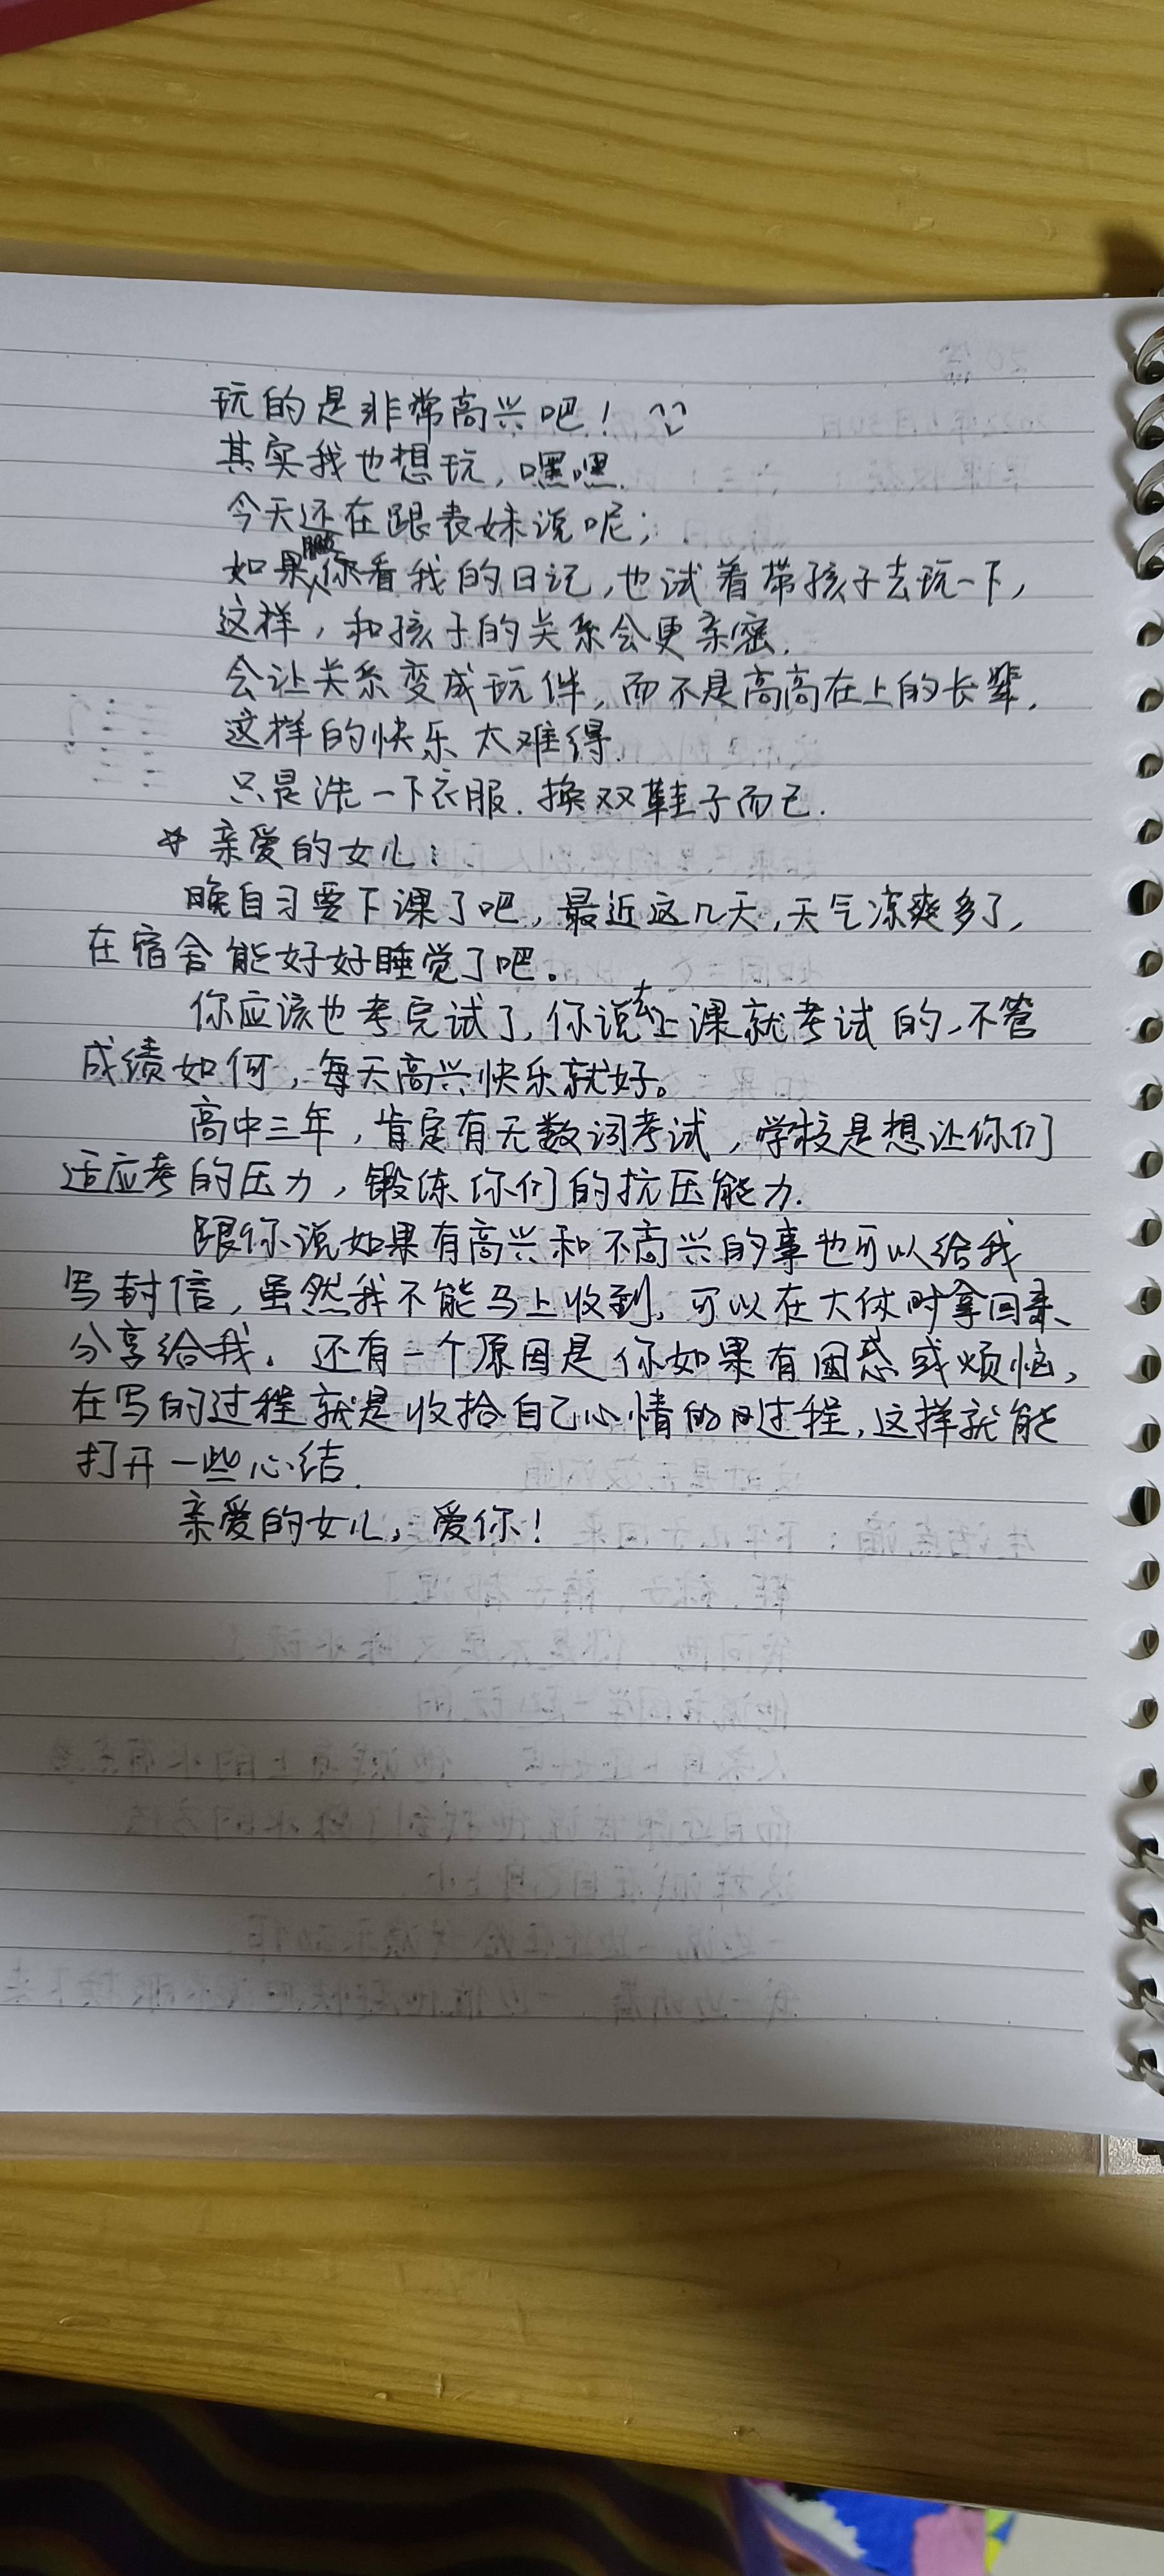 玩的是非常高兴吧！^^
其实我也想玩，嘿嘿.
今天还在跟表妹说呢；
如果你看我的日记，也试着带孩子去玩一下，
这样，和孩子的关系会更亲密.
会让关系变成玩伴，而不是高高在上的长辈.
这样的快乐太难得.
只是洗一下衣服.换双鞋子而已.
☆ 亲爱的女儿：
晚自习要下课了吧，最近这几天，天气凉爽多了，
在宿舍能好好睡觉了吧。
你应该也考完试了，你说去上课就考试的，不管
成绩如何，每天高兴快乐就好。
高中三年，肯定有无数词考试，学校是想让你们
适应考的压力，锻炼你们的抗压能力.
跟你说如果有高兴和不高兴的事也可以给我
写封信，虽然我不能马上收到，可以在大休时拿回来
分享给我。还有一个原因是你如果有困惑或烦恼，
在写的过程就是收拾自己心情的过程，这样就能
打开一些心结.
亲爱的女儿，爱你！